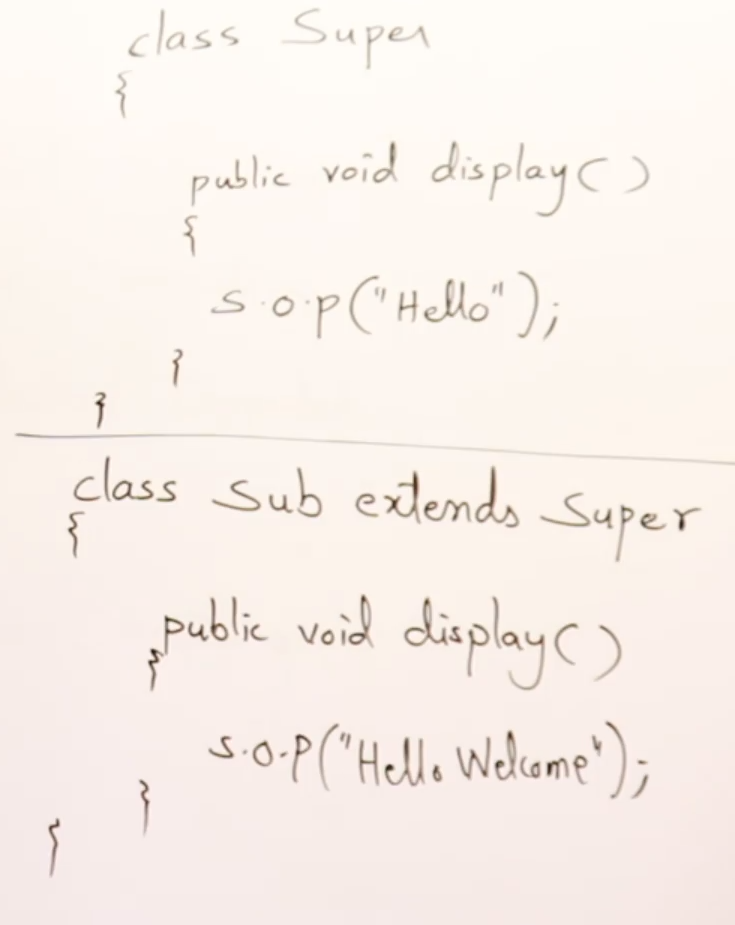 class Super
{
public void display()
{
S.O.P("Hello");
}
}
class Sub extends Super
{
public void display()
{
S.O.P("Hello Welcome");
}
}